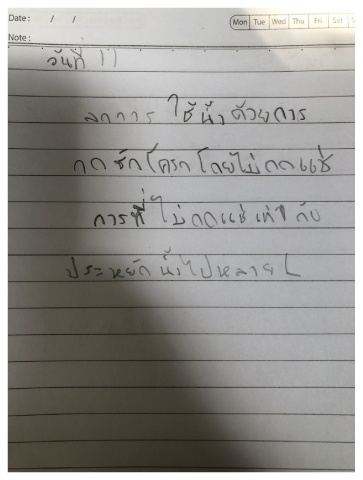 Date : / /
Mon Tue Wed Thu Fri Sat S
Note :
วันที่ 11
ลดการ ใช้น้ำ ด้วยการ
กดชักโครก โดยไม่กดแช่
การที่ ไม่กดแช่ เท่า กับ
ประหยัด น้ำไปหลาย L